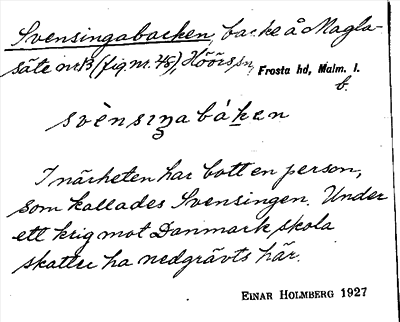 Svensingabacken, backe å Magla-
säte nr 13 (fig. nr. 45), Höörs sn, Frosta hd, Malm. l.
b.
svènsiŋabáken
I närheten har bott en person,
som kallades Svensingen. Under
ett krig mot Danmark skola
skatter ha nedgrävts här.
EINAR HOLMBERG 1927